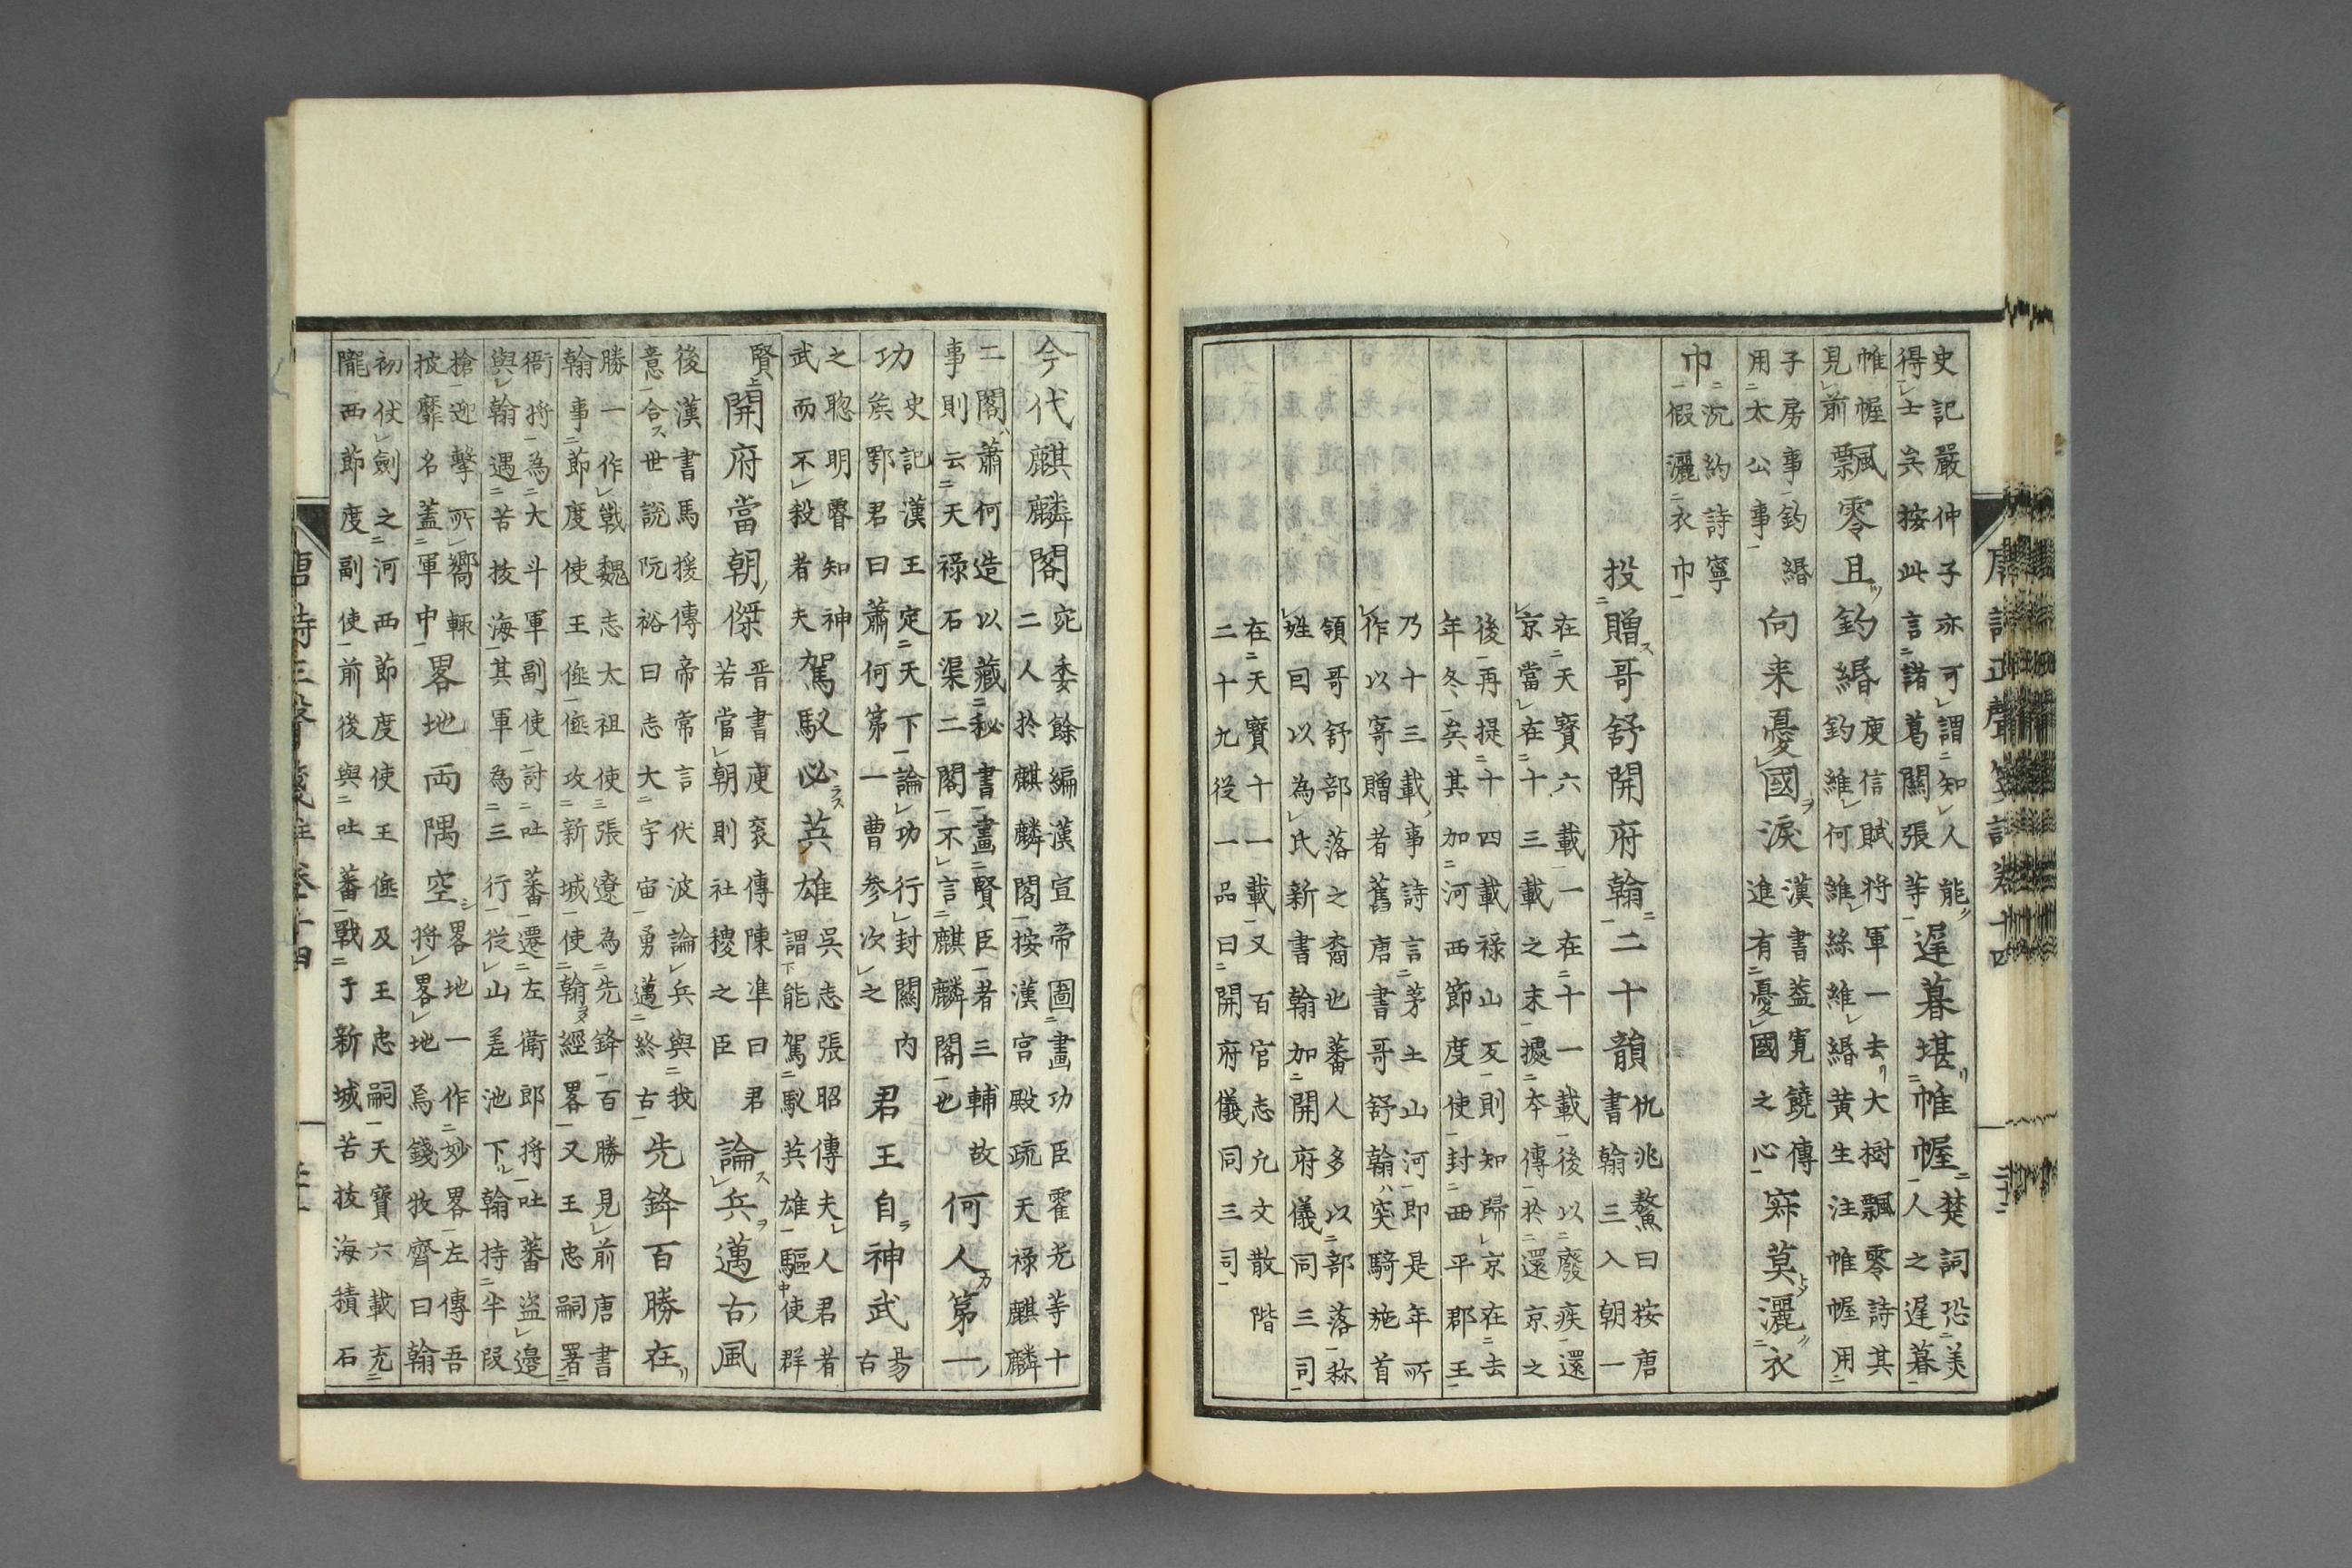 史記嚴仲子亦可謂知人能
得士矣按此言諸葛關張等
遲暮堪帷幄
楚詞恐美
人之遲暮
帷幄
見前
飄零且釣緡
庾信賦將軍一去大樹飄零詩其
釣維何維絲維緡黃生注帷幄用
子房事釣緡
用太公事
向来憂國淚
漢書蓋寬饒傳
進有憂國之心
寂莫灑衣
巾
沉約詩寧
假灑衣巾
投贈哥舒開府翰二十韻
仇兆鰲曰按唐
書翰三入朝一
在天寶六載一在十一載後以廢疾還
京當在十三載之末據本傳於還京之
後再提十四載禄山反則知歸京在去
年冬矣其加河西節度使封西平郡王
乃十三載事詩言茅土山河即是年所
作以寄贈者舊唐書哥舒翰突騎施首
領哥舒部落之裔也蕃人多以部落称
姓囙以為氏新書翰加開府儀同三司
在天寶十一載又百官志九文散階
二十九從一品曰開府儀同三司
唐詩正聲箋註卷十四
二十二
今代麒麟閣
定委餘編漢宣帝圖畫功臣霍光等十
二人於麒麟閣按漢宮殿疏天禄麒麟
二閣蕭何造以藏秘書畫賢臣者三輔故
事則云天禄石渠二閣不言麒麟閣也
何人第一
功
史記漢王定天下論功行封關内
矦鄂君曰蕭何第一曹参次之
君王自神武
易
古
之聦明睿知神
武而不殺者夫
駕馭必英雄
吳志張昭傳夫人君者
謂能駕馭英雄驅使群
賢
開府當朝傑
晋書庾衮傳陳準曰君
若當朝則社稷之臣
論兵邁古風
後漢書馬援傳帝常言伏波論兵與我
意合世說阮裕曰志大宇宙勇邁終古
先鋒百勝在
勝一作戰魏志太祖使張遼為先鋒百勝見前唐書
翰事節度使王倕倕攻新城使翰經畧又王忠嗣署
衙將為大斗軍副使討吐蕃遷左衛郎將吐蕃盜邊
與翰遇苦拔海其軍為三行從山差池下翰持半段
搶迎擊所嚮輒
披靡名蓋軍中
畧地両隅空
畧地一作妙畧左傳吾
將畧地烏錢牧齊曰翰
初伏劍之河西節度使王倕及王忠嗣天寶六載充
隴西節度副使前後與吐蕃戰于新城苦拔海積石